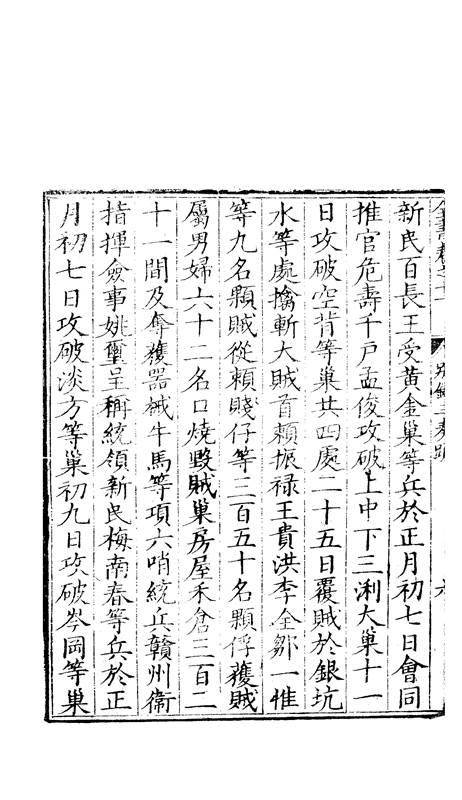 全書卷之十一 別錄三奏疏 六
新民百長王受黃金巢等兵於正月初七日會同
推官危壽千戶孟俊攻破上中下三浰大巢十一
日攻破空背等巢共四處二十五日覆賊於銀坑
水等處擒斬大賊首賴振祿王貴洪李全鄒一惟
等九名顆賊從賴賤仔等三百五十名顆俘獲賊
屬男婦六十二名口燒毀賊巢房屋禾倉三百二
十一間及奪獲器械牛馬等項六哨統兵贛州衛
指揮僉事姚璽呈稱統領新民梅南春等兵於正
月初七日攻破淡方等巢初九日攻破岑岡等巢